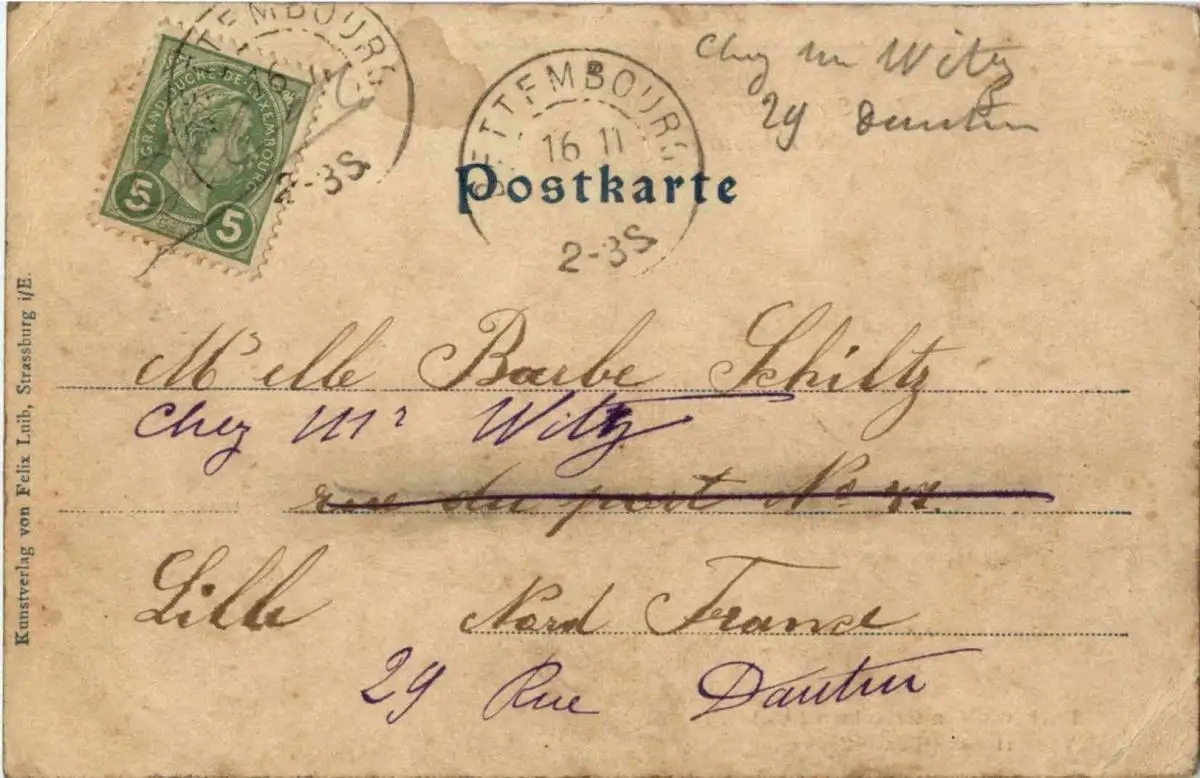 BETTEMBOURG
16 11
2-3S
GRAND DUCHÉ-DE-LUXEMBOURG
5 5
BETTEMBOURG
16 11
2-3S
chez Mr Witz
29 Dantin
Postkarte
Melle Barbe Schiltz
chez Mr Witz
rue du port No
Lille Nord France
29 Rue Dantin
Kunstverlag von Felix Luib, Strassburg i/E.